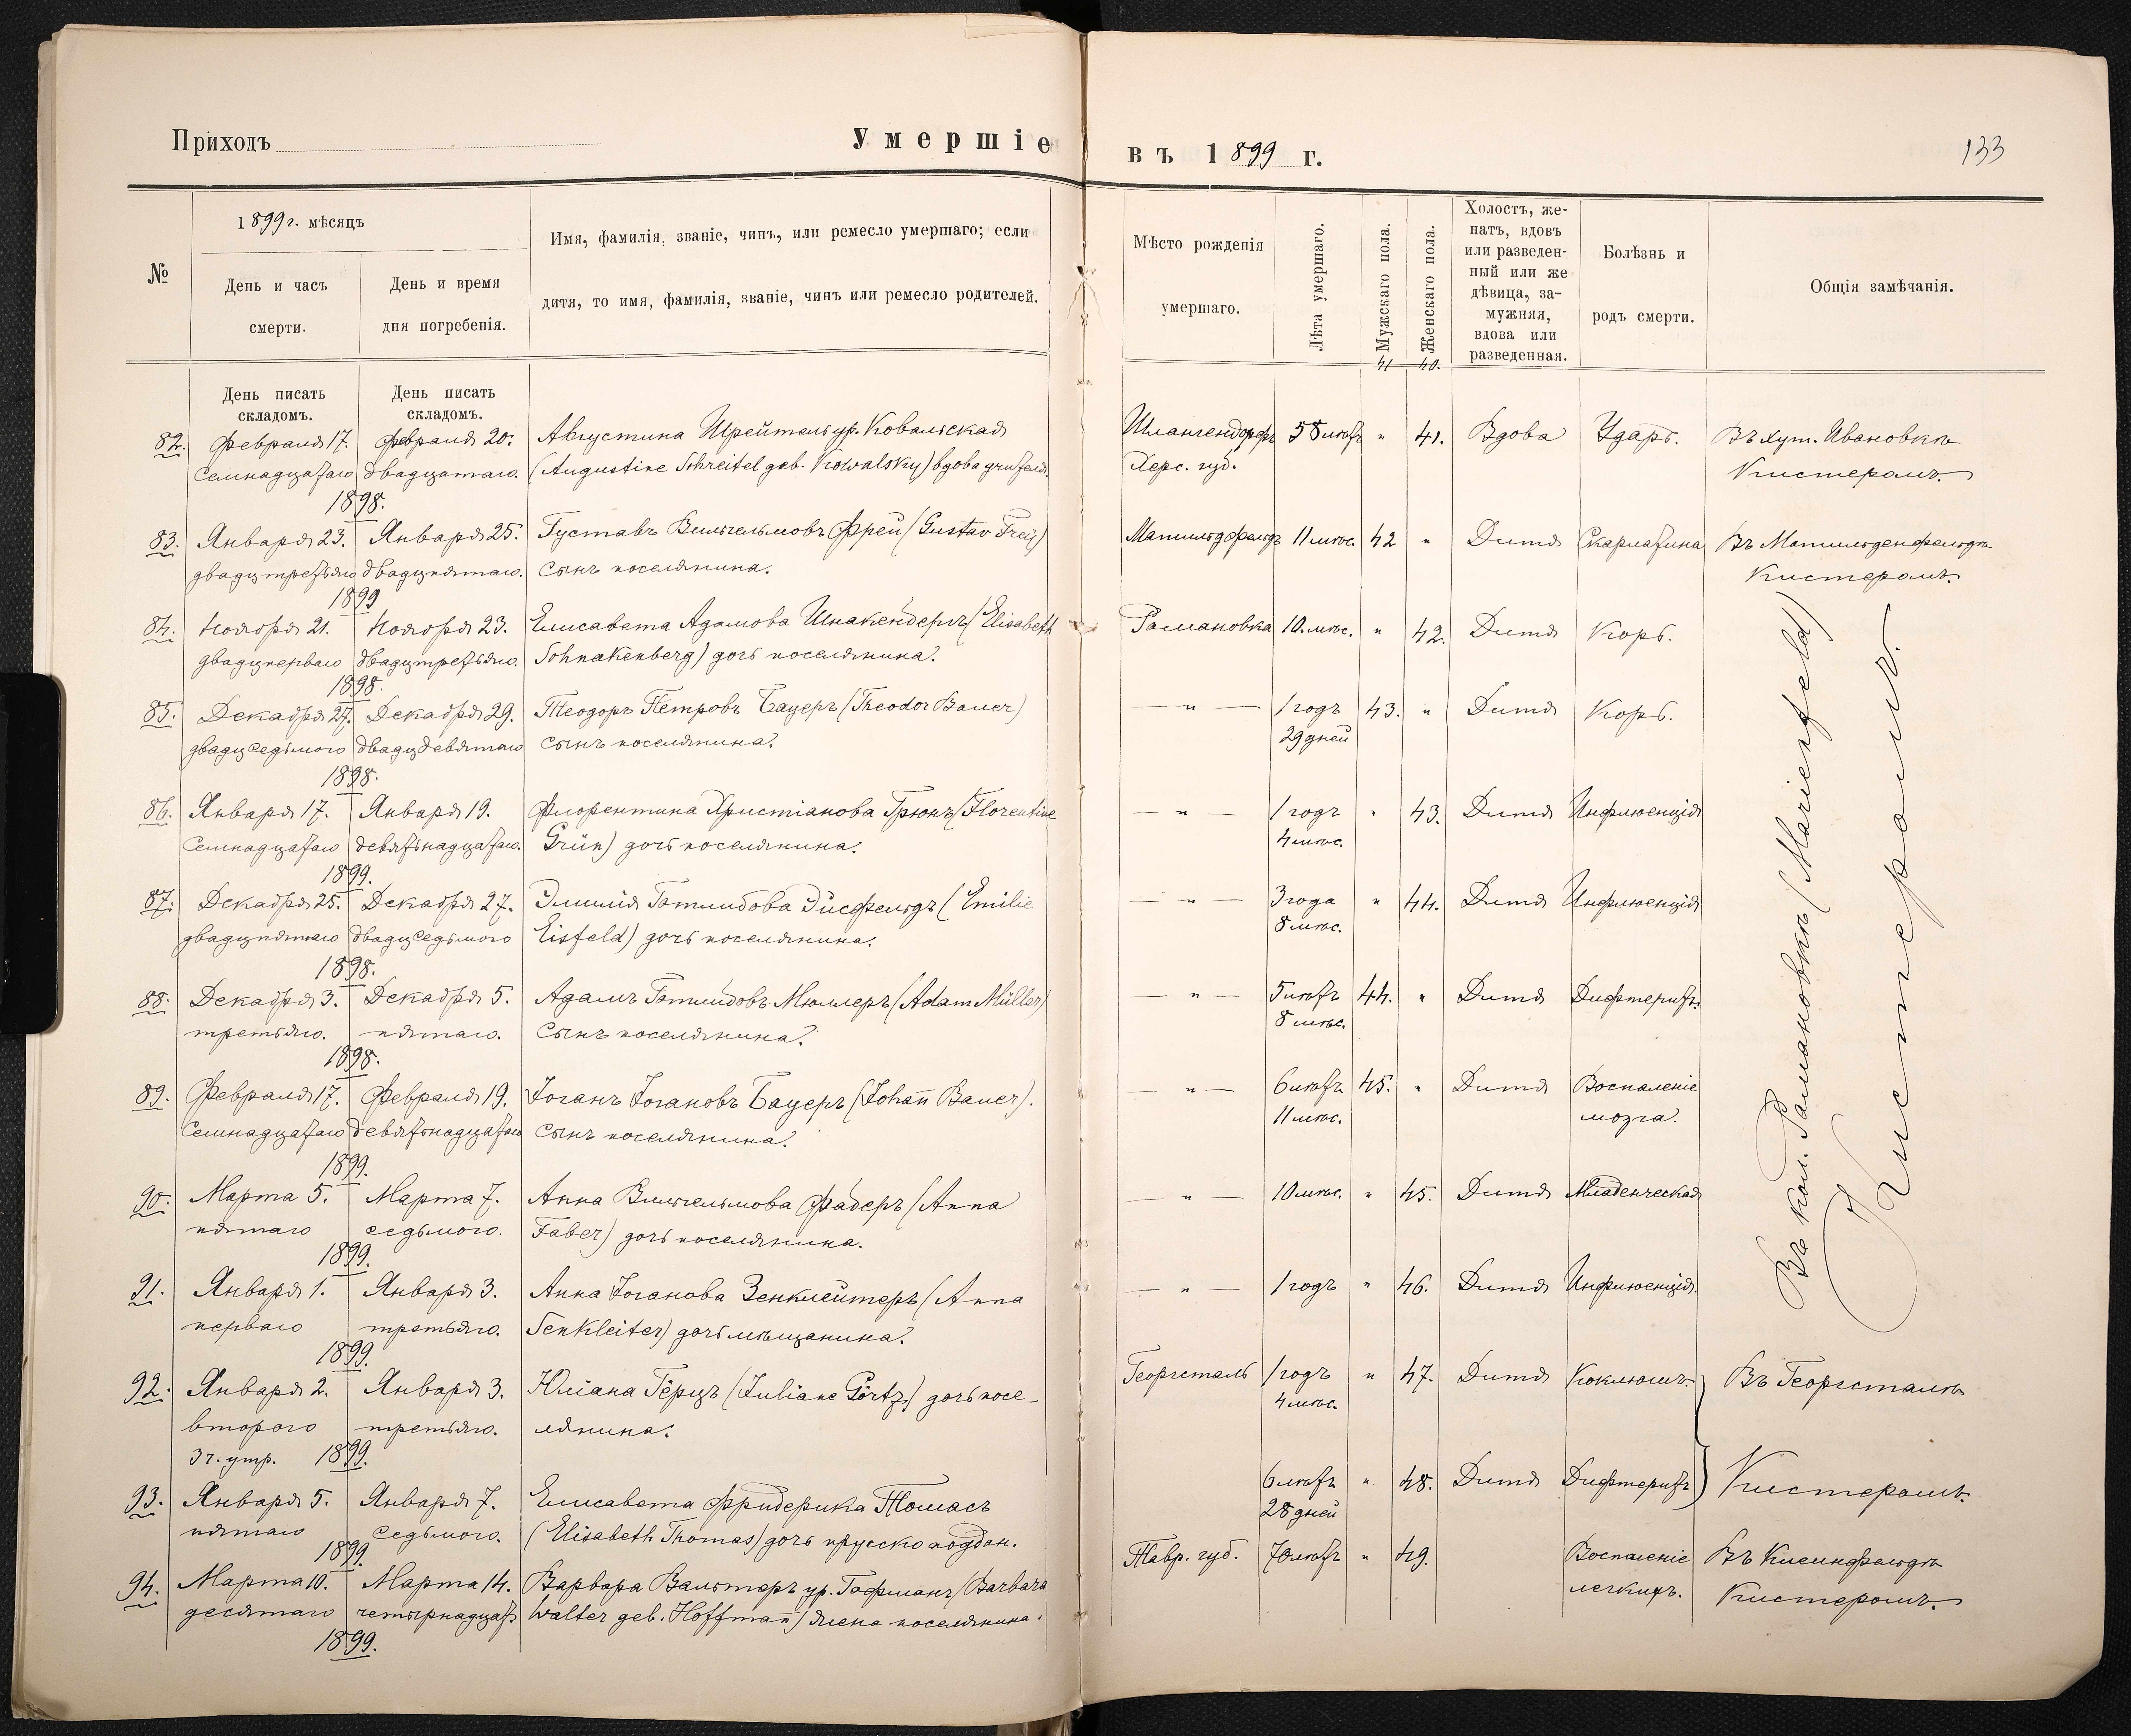 Приходъ
Умершіе
въ 1899 г.
133
№
1899 г. мѣсяцъ
День и часъ
смерти.
День и время
дня погребенія.
Имя, фамилія, званіе, чинъ, или ремесло умершаго; если
дитя, то имя, фамилія, званіе, чинъ или ремесло родителей.
Мѣсто рожденія
умершаго.
Лѣта умершаго.
Мужскаго пола.
Женскаго пола.
Холостъ, же-
натъ, вдовъ
или разведен-
ный или же
дѣвица, за-
мужняя,
вдова или
разведенная.
Болѣзнь и
родъ смерти.
Общія замѣчанія.
41 40.
День писать
складомъ.
День писать
складомъ.
82. Февраля 17. Февраля 20. Августина Шрейтель ур. Ковальская Шлангендорфъ 58 лѣтъ " 41. Вдова Ударъ. Въ хут. Ивановкѣ
Семнадцатаго двадцатаго. (Augustine Schreitel geb. Kowalsky) вдова учителя. Херс. губ. Кистеромъ.
1898.
83. Января 23. Января 25. Густавъ Вильгельмовъ Фрей (Gustav Frey) Матильдфельдъ 11 мѣс. 42 " Дитя Скарлатина Въ Матильденфельдѣ
двадцтретьяго двадцпятаго. сынъ поселянина. Кистеромъ.
1899
84. Ноября 21. Ноября 23. Елисавета Адамова Шнакенбергъ (Elisabeth Романовка 10. мѣс. " 42. Дитя Корь.
двадцперваго двадцтретьяго. Schnakenberg) дочь поселянина.
1898.
85. Декабря 27. Декабря 29. Теодоръ Петровъ Бауеръ (Theodor Bauer) — " — 1 годъ 43. " Дитя Корь.
двадцседьмого двадцдевятаго сынъ поселянина. 29 дней
1898.
86. Января 17. Января 19. Флорентина Христіанова Грюнъ (Florentine — " — 1 годъ " 43. Дитя Инфлюенція
Семнадцатаго девятнадцатаго. Grün) дочь поселянина. 4 мѣс.
1899.
87. Декабря 25. Декабря 27. Эмилія Готлибова Эйсфельдъ (Emilie — " — 3 года " 44. Дитя Инфлюенція
двадцпятаго двадцседьмого Eisfeld) дочь поселянина. 8 мѣс.
1898.
88. Декабря 3. Декабря 5. Адамъ Готлибовъ Мюллеръ (Adam Müller) — " — 5 лѣтъ 44. " Дитя Дифтеритъ.
третьяго. пятаго. сынъ поселянина. 8 мѣс.
1898.
89. Февраля 17. Февраля 19. Іоганъ Іогановъ Бауеръ (Johan̄ Bauer). — " — 6 лѣтъ 45. " Дитя Воспаленіе
Семнадцатаго девятнадцатаго сынъ поселянина. 11 мѣс. мозга.
1899.
90. Марта 5. Марта 7. Анна Вильгельмова Фаберъ (Anna — " — 10 мѣс. " 45. Дитя Младенческая
пятаго седьмого. Faber) дочь поселянина.
1899.
91. Января 1. Января 3. Анна Іоганова Зенклейтеръ (Anna — " — 1 годъ " 46. Дитя Инфлюенція.
перваго третьяго. Senkleiter) дочь мѣщанина.
1899.
Въ кол. Романовкѣ (Marienfeld)
Кистеромъ.
92. Января 2. Января 3. Юліана Гёрцъ (Juliane Görtz) дочь посе- Георгсталь 1 годъ " 47. Дитя Коклюшъ. Въ Георгсталѣ
второго третьяго. лянина. 4 мѣс.
3 ч. утр. 1899.
93. Января 5. Января 7. Елисавета Фридерика Томасъ 6 лѣтъ " 48. Дитя Дифтеритъ Кистеромъ.
пятаго седьмого. (Elisabeth Thomas) дочь прусско поддан. 28 дней
1899.
94. Марта 10. Марта 14. Варвара Вальтеръ ур. Гофманъ (Barbara Тавр. губ. 70 лѣтъ " 49. Воспаленіе Въ Клейнфельдѣ
десятаго четырнадцатъ Walter geb. Hoffman̄) жена поселянина. легкихъ. Кистеромъ.
1899.